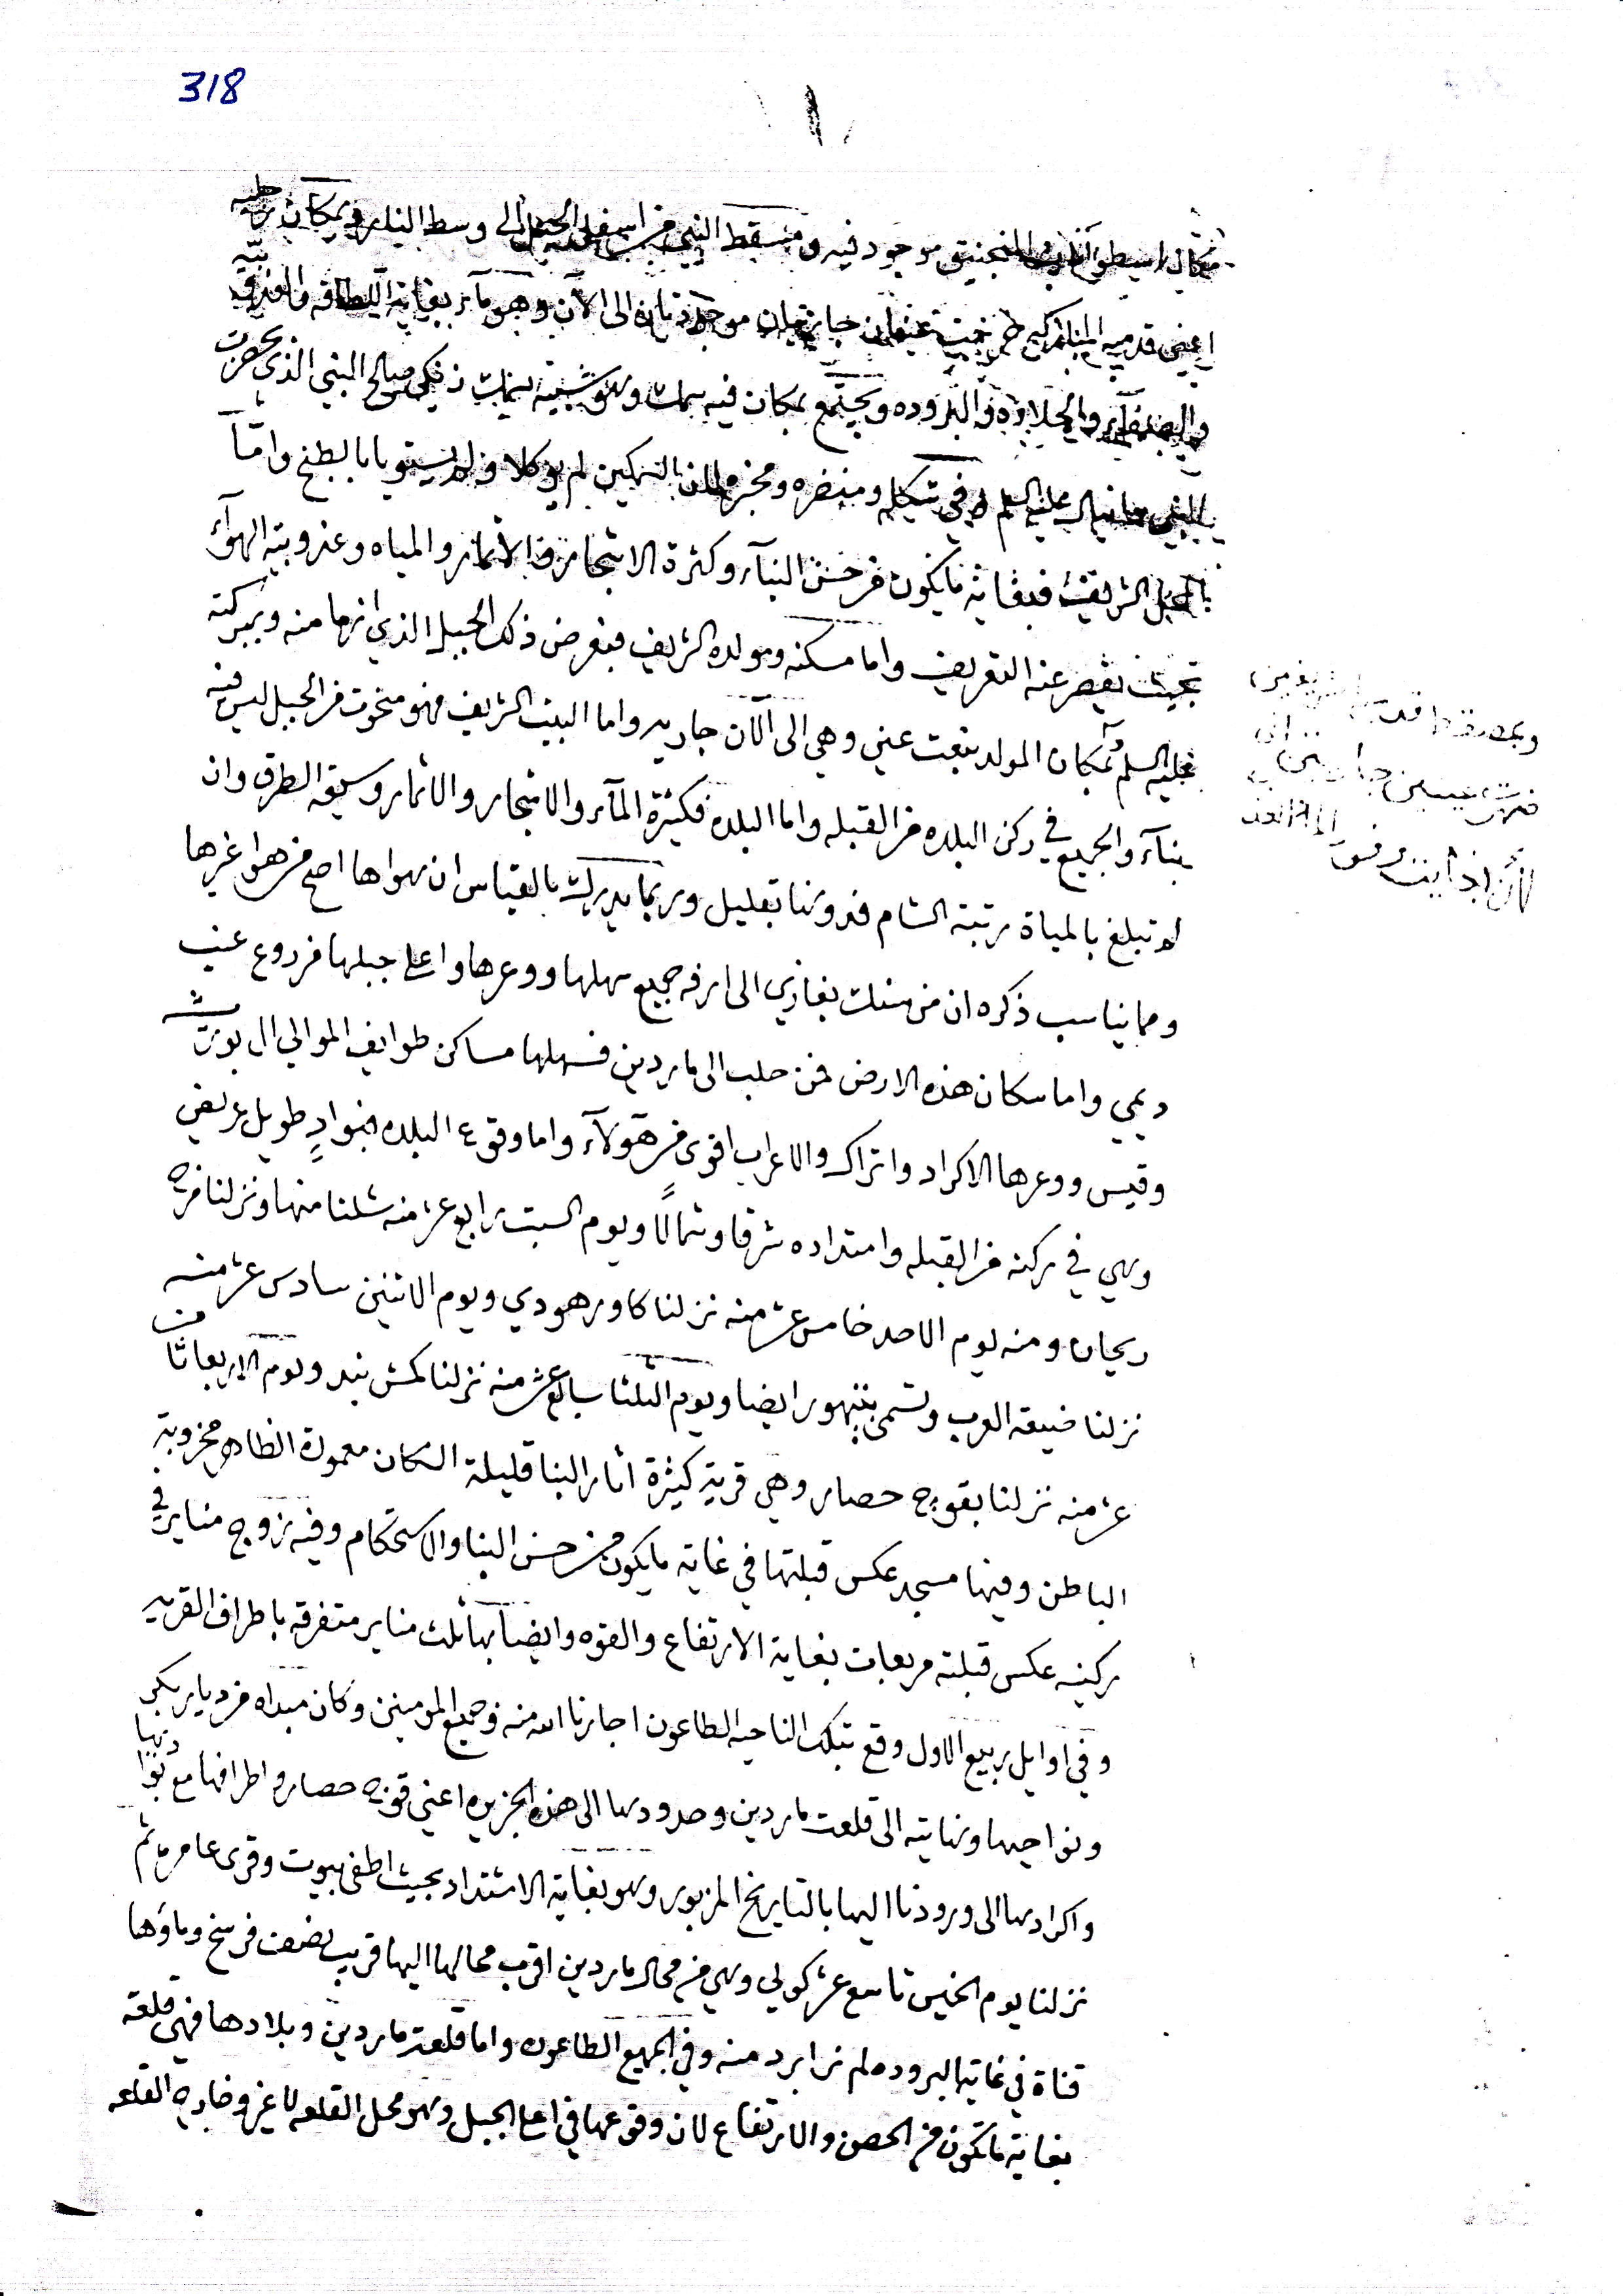 318
مكان اسطوانات المنجنيق موجود فيه ومسقط النبي من اسفل الجبل الى وسط النار وبمكان رجليه
اعني قدميه المباركين نبعت عينان جاريتان موجودتان الى الآن وهو ماء بغاية اللطافه والعذوبيه
والصفآء والحلاوه والبروده ويجتمع بمكان فيه سمك وهو شبيه بسمك صالح النبي الذي بحضرت
النبي دانيال عليه السلم في شكله ومنضره ومخبره لان السمكين لم يوكلا ولم يستويا بالطبخ وامّا
الجبل الشريف فبغاية مايكون من حسن البنآء وكثرة الاشجار والاثمار والمياه وعذوبية الهوآء
بحيث يقصر عنه التعريف واما مسكنه ومولده الشريف فبعرض ذلك الجبل الذي ازما منه وببركته
عليه السلم بمكان المولد نبعت عين وهي الى الآن جاريه واما البيت الشريف فهو منحوت من الجبل ليس فيه
بنآء والجميع في ركن البلده من القبله واما البلده فكثيرة المآء والاشجار والاثمار وسيعة الطرق وان
لم تبلغ بالمياة مرتبة الشام فدونها بقليل وربما يدرك بالقياس ان هواها اصح من هوا غيرها
ومما يناسب ذكره ان من هنلك بغازي الى ارفه جميع سهلها ووعرها واعلى جبلها مزروع عنب
ديمي واما سكان هذه الارض فمن حلب الى ماردين فسهلها مساكن طوايف الموالي ال بوريشه
وقيس ووعرها الاكراد واتراك والاعراب اقوى من هؤلآء واما وقوع البلده فبوادٍ طويل عريض
وهي في ركنه من القبله وامتداده شرقا وشمالًا ويوم السبت رابع عشر منه شلنا منها ونزلنا مزجه
ريحان ومنه يوم الاحد خامس عشر منه نزلنا كاور هودي ويوم الاثنين سادس عشر منه
نزلنا ضيقه العرب وتسمى بنبهور ايضا ويوم الثلثا سابع عشر منه نزلنا كمش بند ويوم الاربعا ثامن
عشر منه نزلنا بقوج حصار وهي قرية كثيرة اثار البنا قليلة السكان معمورة الظاهر مخروبة
الباطن وفيها مسجد عكس قبلتها في غاية مايكون من حسن البنا والاستحكام وفيه زوج مناير في
ركنيه عكس قبلته مربعات بغاية الارتفاع والقوه وايضاً بها ثلث مناير متفرقه باطراف القريه
وفي اوايل ربيع الاول وقع بتلك الناحيه الطاعون اجارنا الله منه وجميع المومنين وكان مبداه من ديار بكر
ونواحيها ونهايته الى قلعت ماردين وحدودها الى هذه الجزيره اعني قوج حصار واطرافها مع بواديها
واكرادها الى ورودنا اليها بالتاريخ المزبور وهو بغاية الامتداد بحيث اطفى بيوت وقرى عامره ثم
نزلنا يوم الخميس تاسع عشر كولي وهي من محال ماردين اقرب محالها اليها قريب نصف فرسخ وماؤها
قناة في غاية البروده لم نر ابرد منه وفي الجميع الطاعون واما قلعت ماردين وبلادها فهي قلعه
بغاية ماتكون من الحصن والارتفاع لان وقوعها في اعلى الجبل وهو محل القلعه لا غير وخارج القلعه